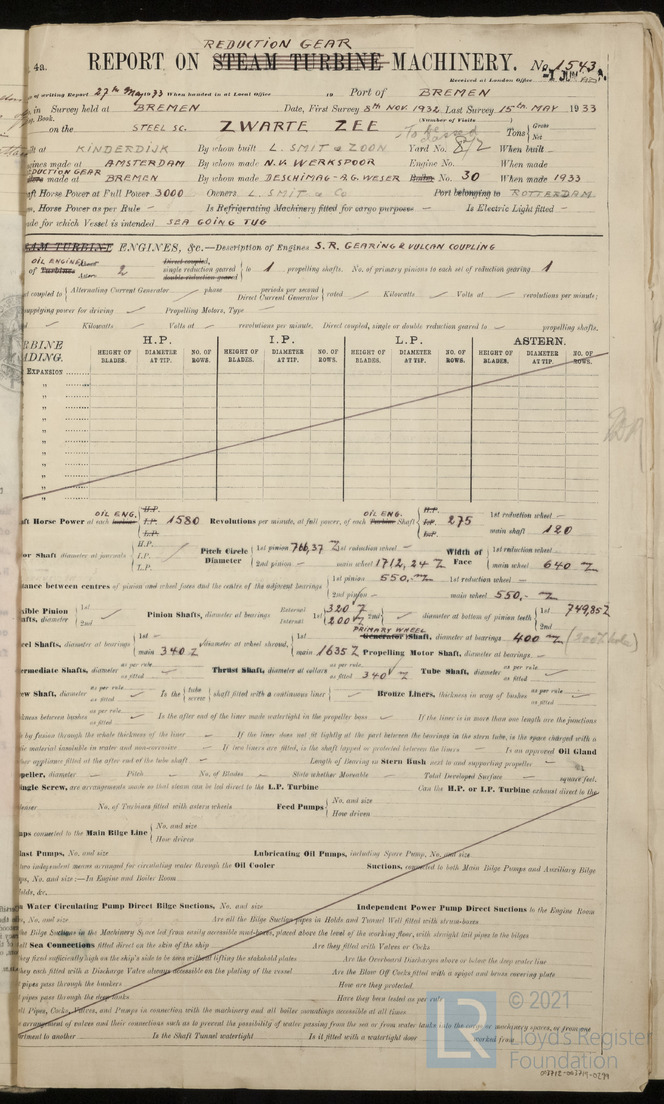 REDUCTION GEAR
4a. REPORT ON STEAM TURBINE MACHINERY. No. 1543
Received at London Office
of writing Report 27th May 1933 When handed in at Local Office 19 Port of BREMEN
in Survey held at BREMEN Date, First Survey 8th NOV. 1932 Last Survey 15th MAY 1933
Book. (Number of Visits)
on the STEEL SC. ZWARTE ZEE Tons Gross Net
at KINDERDIJK By whom built L. SMIT & ZOON Yard No. 812 When built -
gines made at AMSTERDAM By whom made N.V. WERKSPOOR Engine No. When made
REDUCTION GEAR
made at BREMEN By whom made DESCHIMAG-A.G. WESER Boiler No. 30 When made 1933
aft Horse Power at Full Power 3000 Owners L. SMIT & Co Port belonging to ROTTERDAM
Horse Power as per Rule - Is Refrigerating Machinery fitted for cargo purposes - Is Electric Light fitted -
ade for which Vessel is intended SEA GOING TUG
STEAM TURBINE ENGINES, &c.—Description of Engines S.R. GEARING & VULCAN COUPLING
OIL ENGINES Ahead Direct coupled,
of Turbines Astern 2 single reduction geared to 1 propelling shafts. No. of primary pinions to each set of reduction gearing 1
double reduction geared
coupled to Alternating Current Generator phase periods per second Direct Current Generator rated Kilowatts Volts at revolutions per minute;
supplying power for driving Propelling Motors, Type
Kilowatts Volts at revolutions per minute. Direct coupled, single or double reduction geared to propelling shafts.
RBINE H.P. I.P. L.P. ASTERN.
ADING. HEIGHT OF BLADES. DIAMETER AT TIP. NO. OF ROWS. HEIGHT OF BLADES. DIAMETER AT TIP. NO. OF ROWS. HEIGHT OF BLADES. DIAMETER AT TIP. NO. OF ROWS. HEIGHT OF BLADES. DIAMETER AT TIP. NO. OF ROWS.
EXPANSION
OIL ENG. OIL ENG.
aft Horse Power at each turbine H.P. I.P. L.P. 1580 Revolutions per minute, at full power, of each Turbine Shaft H.P. I.P. L.P. 275 1st reduction wheel - main shaft 120
or Shaft diameter at journals H.P. I.P. L.P. Pitch Circle Diameter 1st pinion 766,37 1st reduction wheel - 2nd pinion - main wheel 1712,24 Width of Face 1st reduction wheel - main wheel 640
tance between centres of pinion and wheel faces and the centre of the adjacent bearings 1st pinion 550,- 1st reduction wheel - 2nd pinion - main wheel 550,-
xible Pinion afts, diameter 1st 2nd Pinion Shafts, diameter at bearings External 1st 320 Internal 200 2nd diameter at bottom of pinion teeth 1st 749,85 2nd
PRIMARY WHEEL
eel Shafts, diameter at bearings 1st - main 340 diameter at wheel shroud, 1st - main 1635 Generator Shaft, diameter at bearings 400
Propelling Motor Shaft, diameter at bearings -
ermediate Shafts, diameter as per rule as fitted Thrust Shaft, diameter at collars as per rule as fitted 340 Tube Shaft, diameter as per rule as fitted
ew Shaft, diameter as per rule as fitted Is the tube screw shaft fitted with a continuous liner Bronze Liners, thickness in way of bushes as per rule as fitted
ickness between bushes as per rule as fitted Is the after end of the liner made watertight in the propeller boss If the liner is in more than one length are the junctions
by fusion through the whole thickness of the liner If the liner does not fit tightly at the part between the bearings in the stern tube, is the space charged with a
ic material insoluble in water and non-corrosive If two liners are fitted, is the shaft lapped or protected between the liners Is an approved Oil Gland
other appliance fitted at the after end of the tube shaft Length of Bearing in Stern Bush next to and supporting propeller
peller, diameter Pitch No. of Blades State whether Moveable Total Developed Surface square feet.
ingle Screw, are arrangements made so that steam can be led direct to the L.P. Turbine Can the H.P. or I.P. Turbine exhaust direct to the
denser No. of Turbines fitted with astern wheels Feed Pumps No. and size How driven
mps connected to the Main Bilge Line No. and size How driven
llast Pumps, No. and size Lubricating Oil Pumps, including Spare Pump, No. and size
two independent means arranged for circulating water through the Oil Cooler Suctions, connected to both Main Bilge Pumps and Auxiliary Bilge
ps, No. and size :—In Engine and Boiler Room
olds, &c.
n Water Circulating Pump Direct Bilge Suctions, No. and size Independent Power Pump Direct Suctions to the Engine Room
es, No. and size Are all the Bilge Suction pipes in Holds and Tunnel Well fitted with strum-boxes
the Bilge Suctions in the Machinery Space led from easily accessible mud-boxes, placed above the level of the working floor, with straight tail pipes to the bilges
all Sea Connections fitted direct on the skin of the ship Are they fitted with Valves or Cocks
they fixed sufficiently high on the ship's side to be seen without lifting the stokehold plates Are the Overboard Discharges above or below the deep water line
they each fitted with a Discharge Valve always accessible on the plating of the vessel Are the Blow Off Cocks fitted with a spigot and brass covering plate
t pipes pass through the bunkers How are they protected
t pipes pass through the deep tanks Have they been tested as per rule
ll Pipes, Cocks, Valves, and Pumps in connection with the machinery and all boiler mountings accessible at all times
arrangement of valves and their connections such as to prevent the possibility of water passing from the sea or from water tanks into the cargo or machinery spaces, or from one
rtment to another Is the Shaft Tunnel watertight Is it fitted with a watertight door worked from
LR © 2021
Lloyd's Register
Foundation
003712-003719-0299